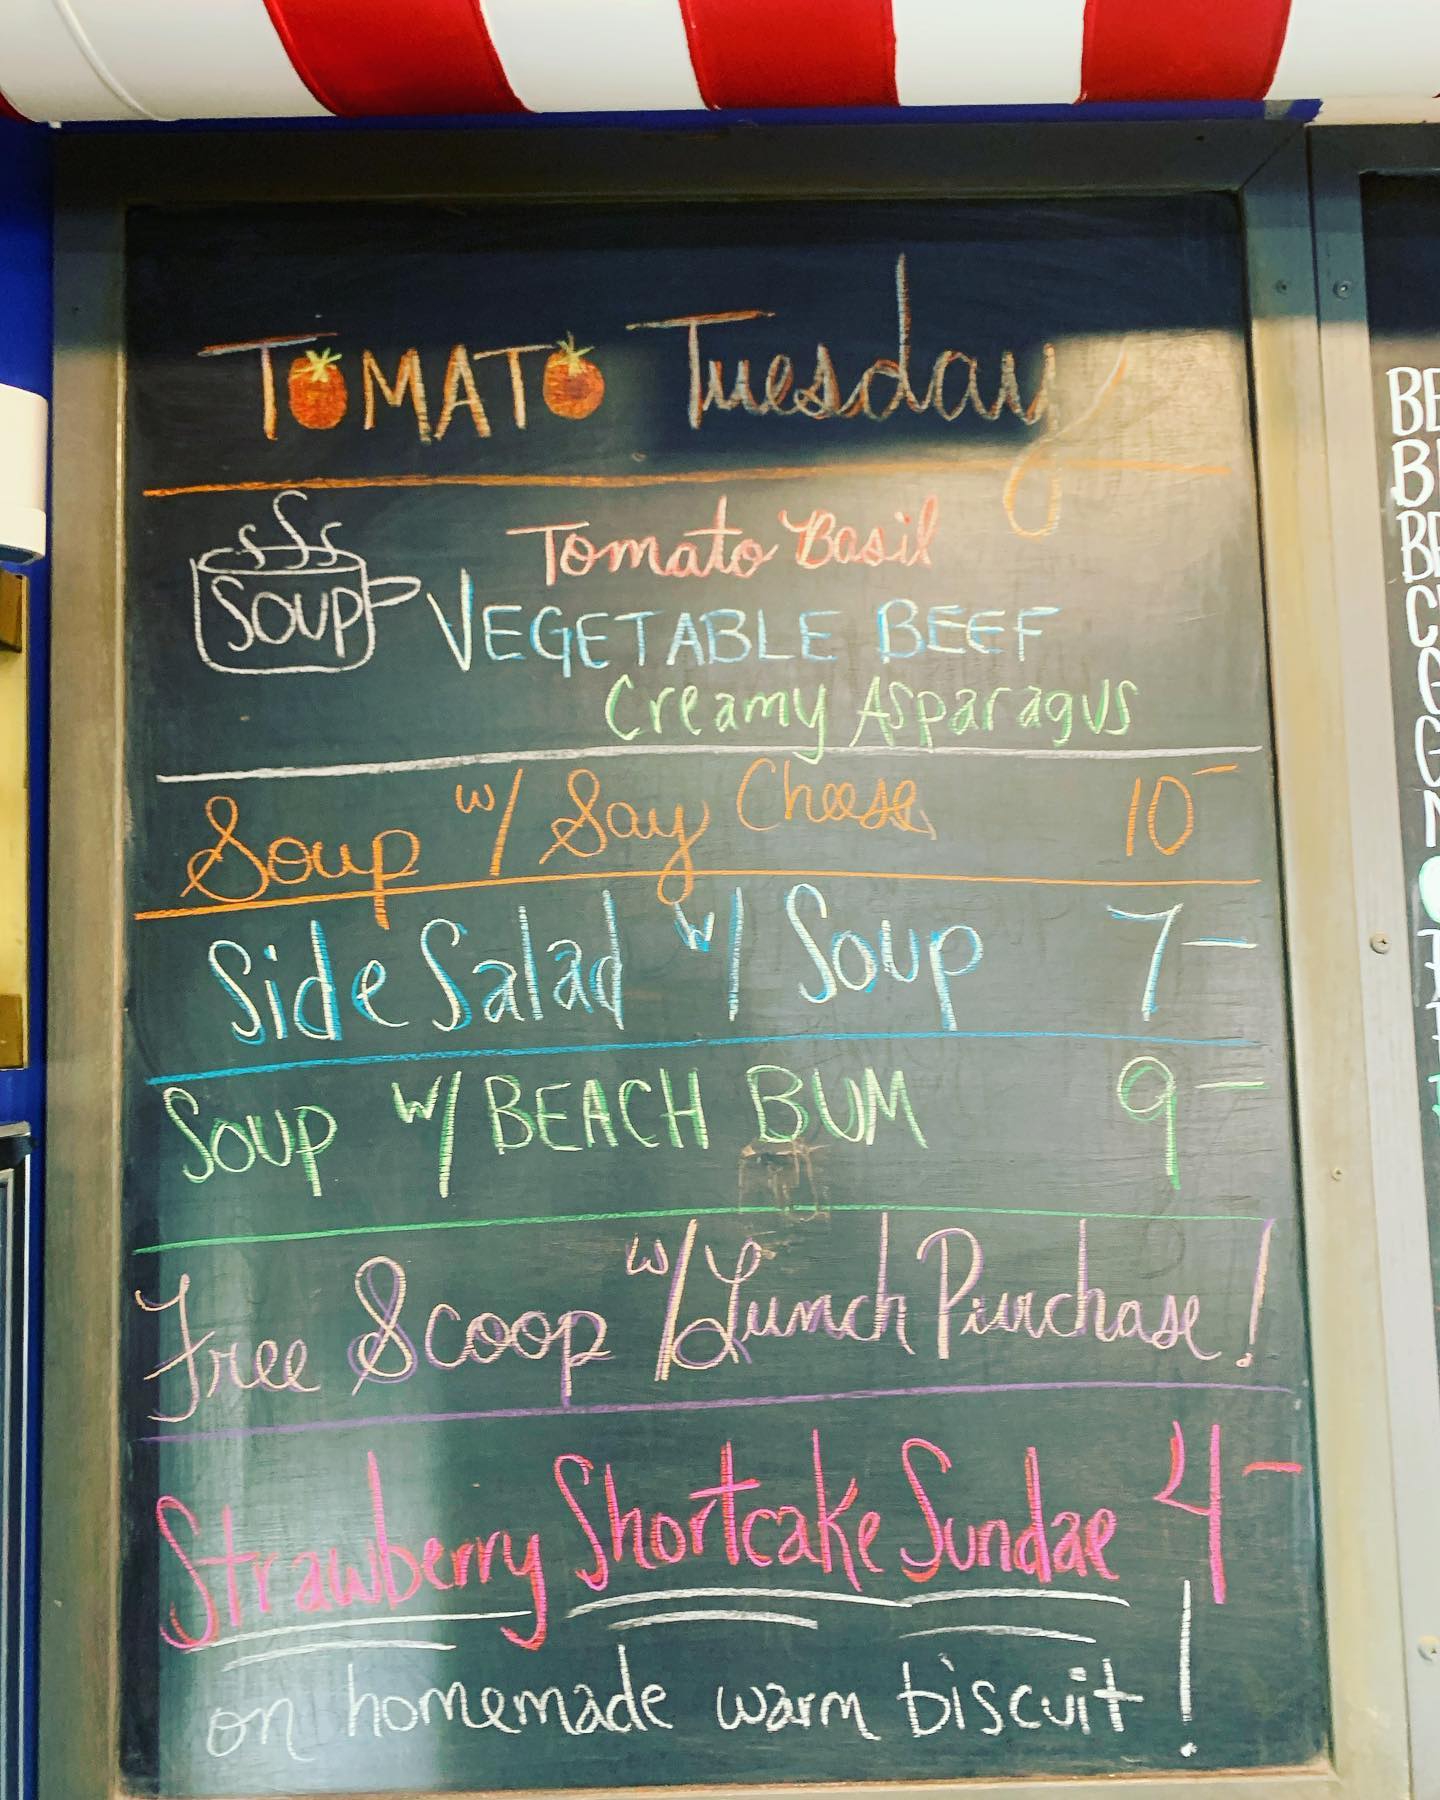 TOMATO Tuesday
SOUP
Tomato Basil
VEGETABLE BEEF
Creamy Asparagus
Soup w/ Say Cheese 10-
Side Salad w/ Soup 7-
Soup w/ BEACH BUM 9-
Free Scoop w/ Lunch Purchase!
Strawberry Shortcake Sundae 4-
on homemade warm biscuit!